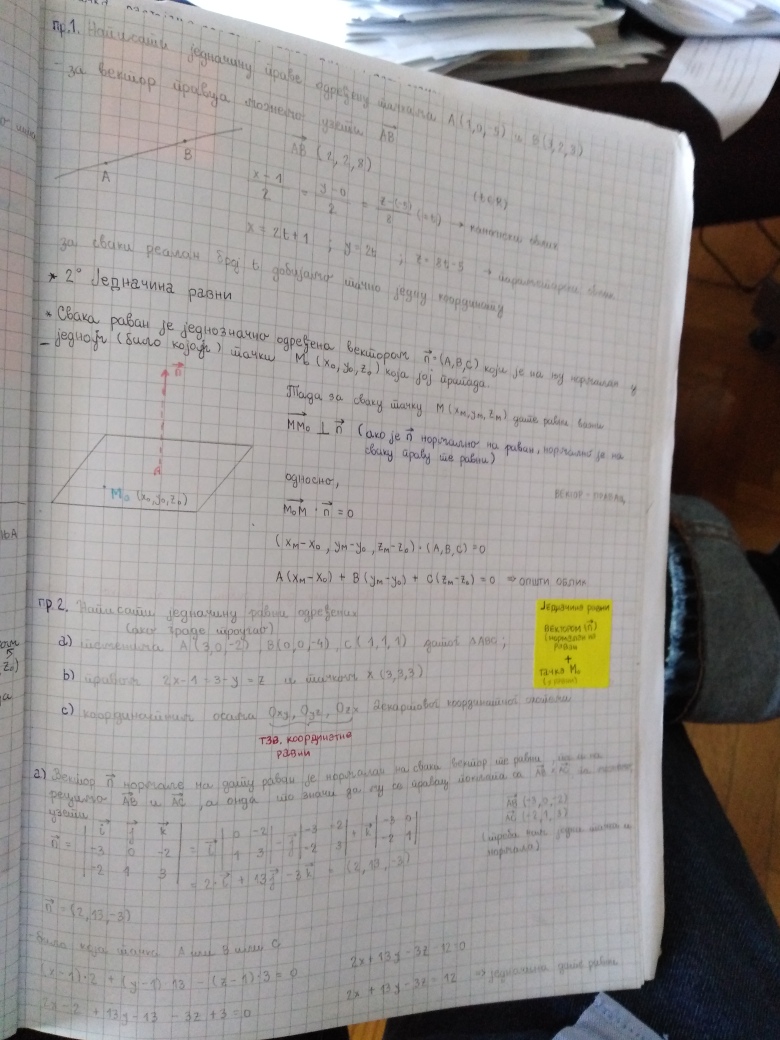 пр.1. Написати једначину праве одређену тачкама A(1,0,-5) и B(3,2,3)
- за вектор правца можемо узети AB
AB (2,2,8)
A
B
(t∈R)
x-1/2 = y-0/2 = z-(-5)/8 (=t) → канонски облик
x = 2t+1 ; y=2t ; z=8t-5 → параметарски облик
за сваки реалан број t добијамо тачно једну координату
* 2° Једначина равни
* Свака раван је једнозначно одређена вектором n=(A,B,C) који је на њу нормалан и
једном (било којом) тачком M₀(x₀,y₀,z₀) која јој припада.
n
M₀ (x₀,y₀,z₀)
Тада за сваку тачку M(xм,yм,zм) дате равни важи
MM₀ ⊥ n (ако је n нормално на раван, нормално је на
сваку праву те равни)
односно,
ВЕКТОР - ПРАВАЦ
M₀M · n = 0
(xм-x₀, yм-y₀, zм-z₀)·(A,B,C)=0
A(xм-x₀) + B(yм-y₀) + C(zм-z₀) = 0 ⇒ општи облик
Једначина равни
вектором (n)
(нормалан на
раван)
+
тачка M₀
пр.2. Написати једначину равни одређених
(ако граде троугао)
а) теменима A(3,0,-2), B(0,0,-4), C(1,1,1) датог ΔABC;
b) правом 2x-1=3-y=z и тачком X(3,3,3)
c) координатним осама Oxy, Oyz, Ozx Декартовог координатног система
тзв. координатне
равни
а) Вектор n нормале на дату раван је нормалан на сваки вектор те равни, па и на
AB и AC, а онда то значи да му се правац поклапа са AB × AC па можемо
узети
AB (-3,0,-2)
AC (-2,1,3)
(треба нам једна тачка и
нормала)
n = | i j k | -3 0 -2 | -2 1 3 | = i | 0 -2 | 1 3 | - j | -3 -2 | -2 3 | + k | -3 0 | -2 1 |
= 2·i + 13j - 3k = (2,13,-3)
n = (2,13,-3)
- било која тачка A или B или C
(x-1)·2 + (y-1)·13 - (z-1)·3 = 0
2x-2 + 13y-13 - 3z+3=0
2x+13y-3z-12=0
2x + 13y - 3z = 12 ⇒ једначина дате равни